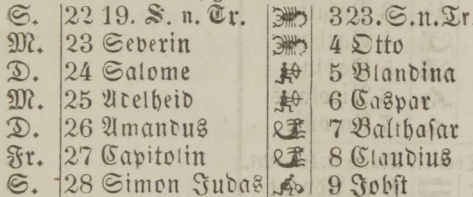 S. 22 19. S. n. Tr. 3 23. S. n. Tr.
M. 23 Severin 4 Otto
D. 24 Salome 5 Blandina
M. 25 Adelheid 6 Caspar
D. 26 Amandus 7 Balthasar
Fr. 27 Capitolin 8 Claudius
S. 28 Simon Judas 9 Jobst